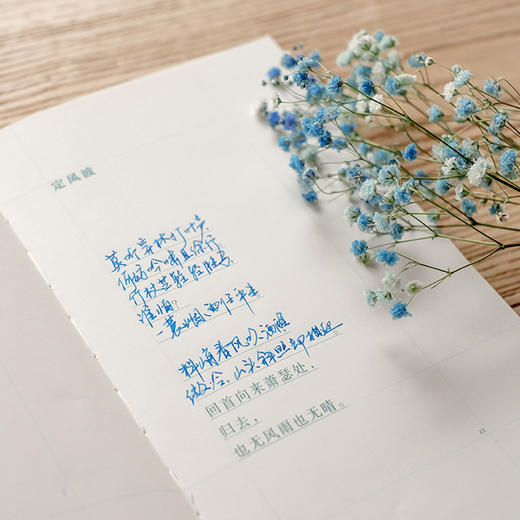 定风波
莫听穿林打叶声
何妨吟啸且徐行
竹杖芒鞋轻胜马
谁怕?
一蓑烟雨任平生
料峭春风吹酒醒
微冷,山头斜照却相迎
回首向来萧瑟处,
归去,
也无风雨也无晴。
21